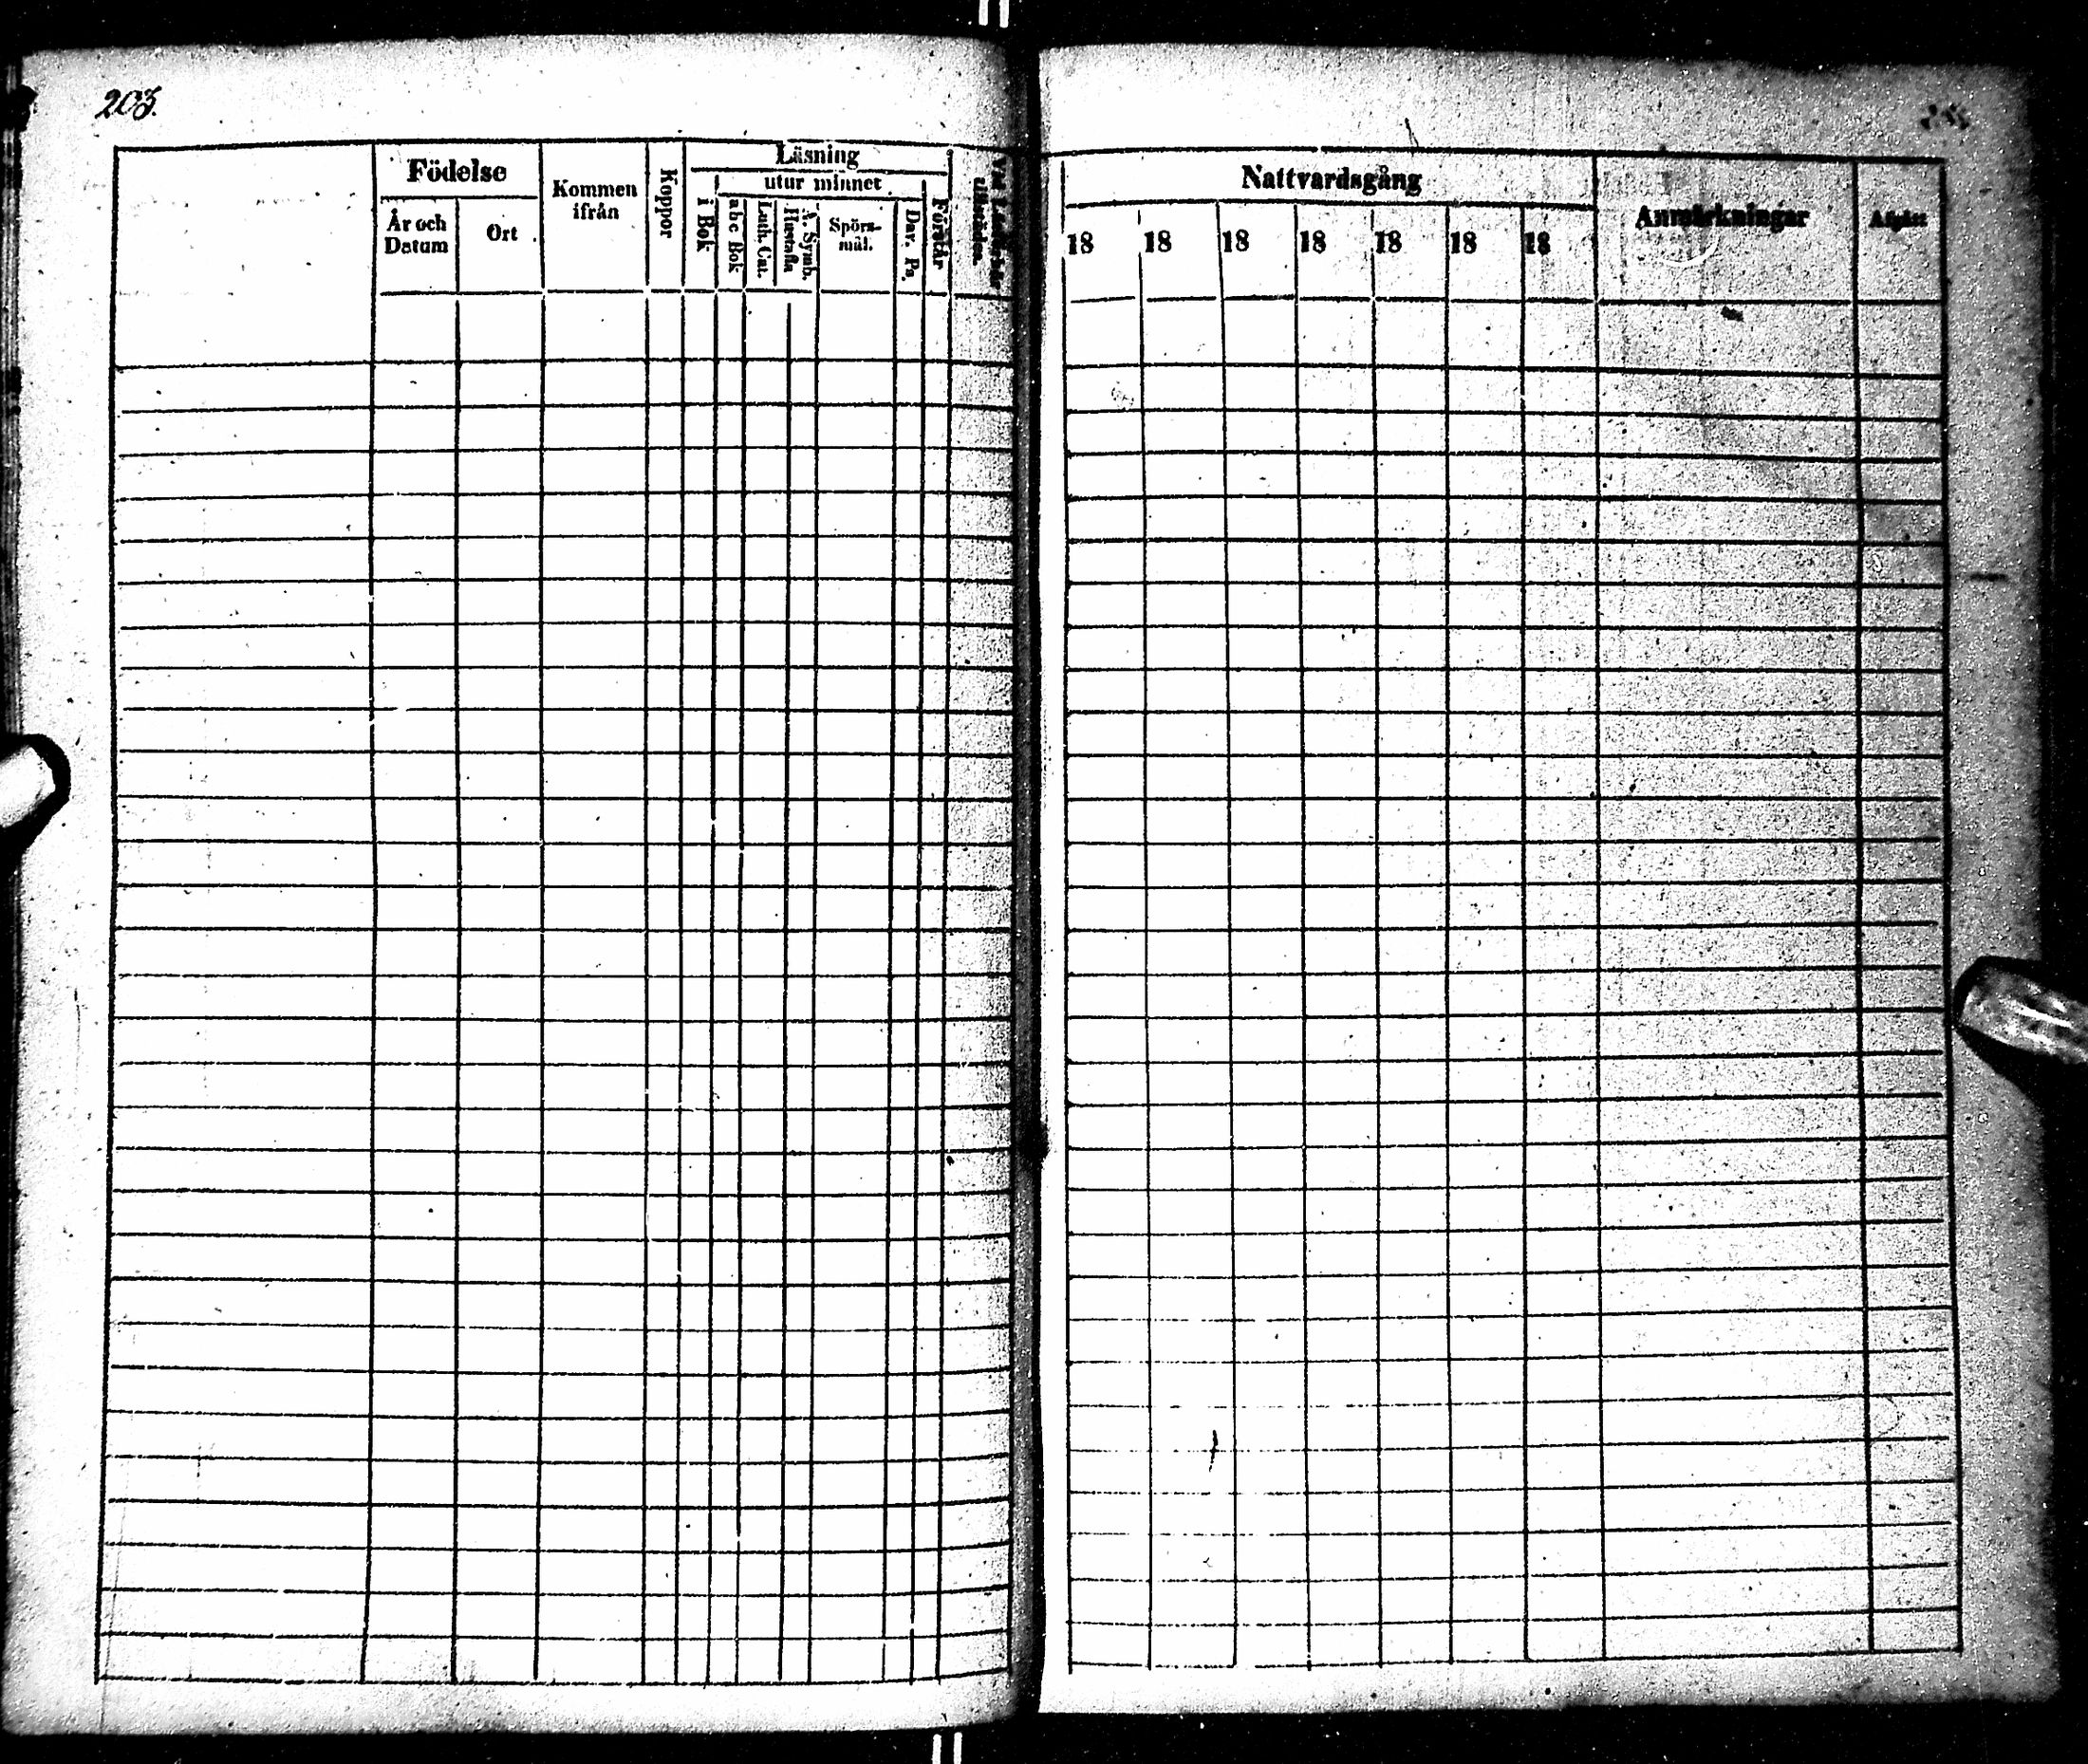 203.
Födelse
År och Datum
Ort
Kommen ifrån
Koppor
Läsning
i Bok
utur minnet
abc Bok
Luth. Cat.
Hustafla
A. Symb.
Spörs-
mål.
Dav. Ps.
Förstår
Nattvardsgång
18 18 18 18 18 18 18
Anmärkningar
Afgått